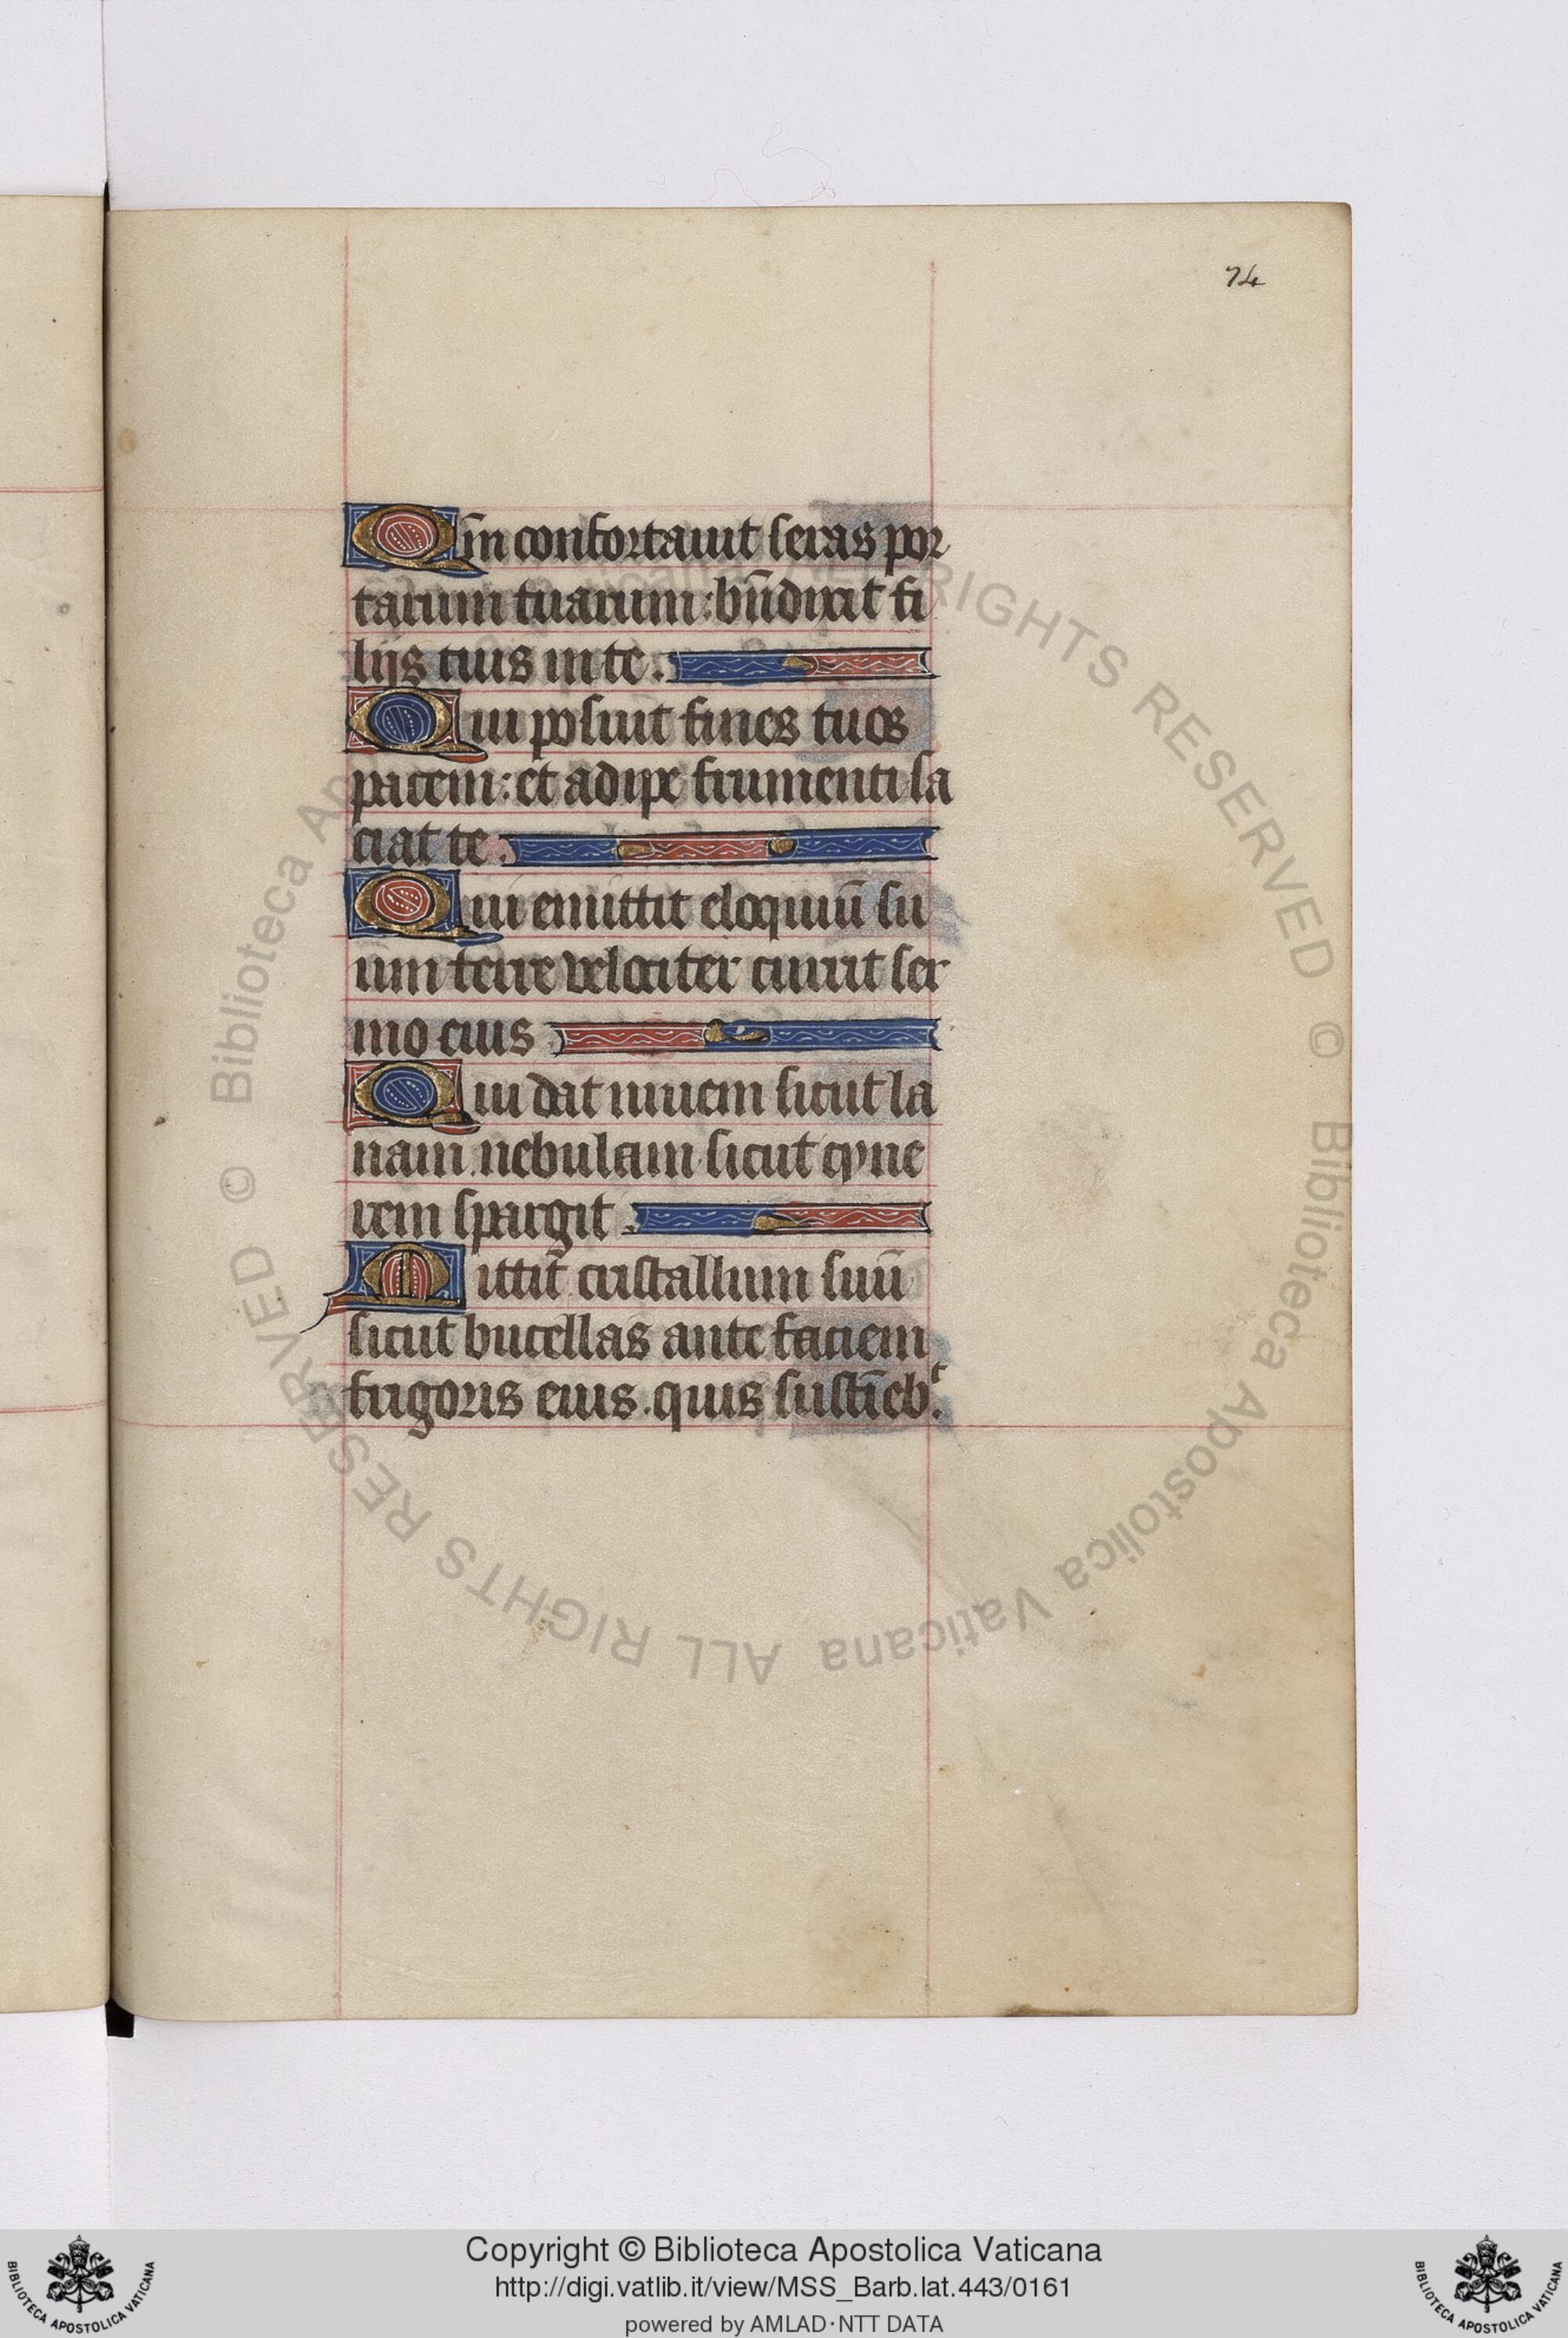 74
Qm̄ confortauit seras por
tarum tuarum: bn̄dixit fi
lijs tuis in te.
Qui posuit fines tuos
pacem: et adipe frumenti sa
ciat te.
Qui emittit eloquiū su
um terre velociter currit ser
mo eius
Qui dat niuem sicut la
nam. nebulam sicut cyne
rem spargit.
Mittit cristallum suū
sicut bucellas ante faciem
frigoris eius. quis sustīebᵗ.
© Biblioteca Apostolica Vaticana ALL RIGHTS RESERVED
© Biblioteca Apostolica Vaticana ALL RIGHTS RESERVED
Copyright © Biblioteca Apostolica Vaticana
http://digi.vatlib.it/view/MSS_Barb.lat.443/0161
powered by AMLAD·NTT DATA
BIBLIOTECA APOSTOLICA VATICANA
BIBLIOTECA APOSTOLICA VATICANA